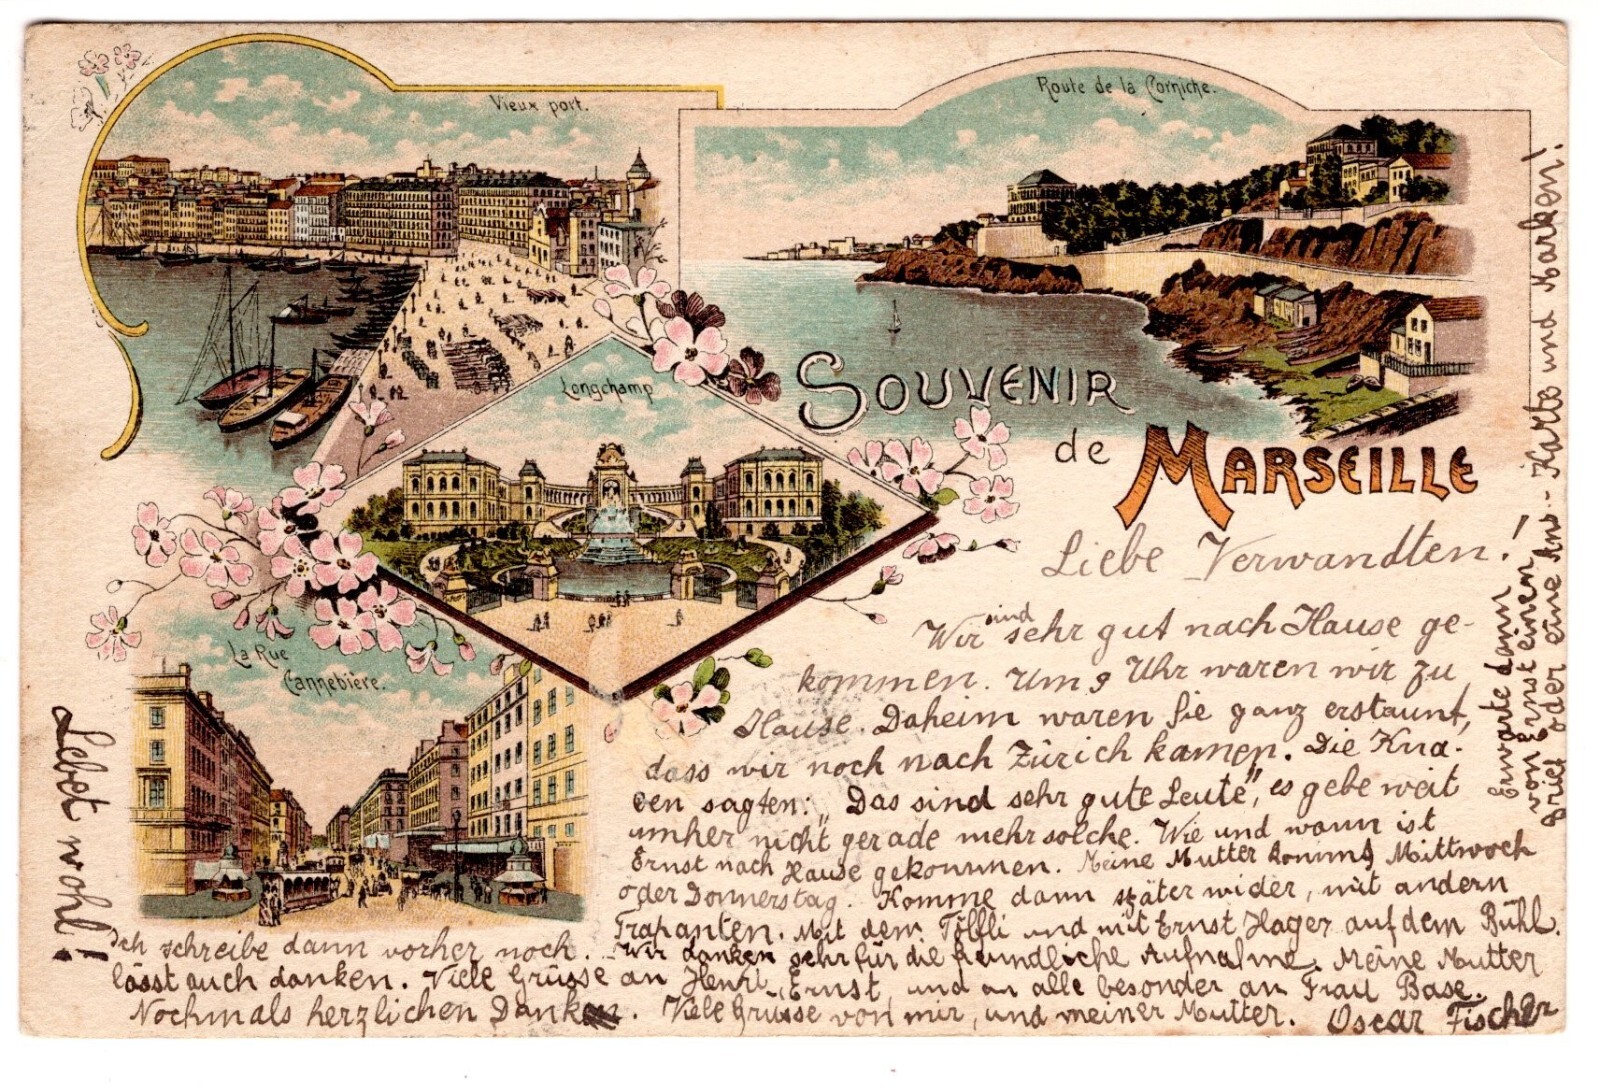 Vieux port.
Route de la Corniche.
Longchamp
SOUVENIR
de
MARSEILLE
La Rue
Cannebière.
Liebe Verwandten!
Wir sind sehr gut nach Hause ge-
kommen. Um 9 Uhr waren wir zu
Hause. Daheim waren Sie ganz erstaunt,
dass wir noch nach Zürich kamen. Die Kna-
ben sagten: „Das sind sehr gute Leute", es gebe weit
umher nicht gerade mehr solche. Wie und wann ist
Ernst nach Hause gekommen. Meine Mutter kommt Mittwoch
oder Donnerstag. Komme dann später wider, mit andern
Trapanten. Mit dem Tölfli und mit Ernst Hager auf dem Bühl.
Ich schreibe dann vorher noch. Wir danken sehr für die freundliche Aufnahme. Meine Mutter
lässt auch danken. Viele Grüsse an Henri, Ernst, und an alle besonder an Frau Base.
Nochmals herzlichen Dank. Viele Grüsse von mir, und meiner Mutter. Oscar Fischer
Lebet wohl!
Erwarte dann
von Ernst einen
Brief oder eine Ans.- Karte und Marken!